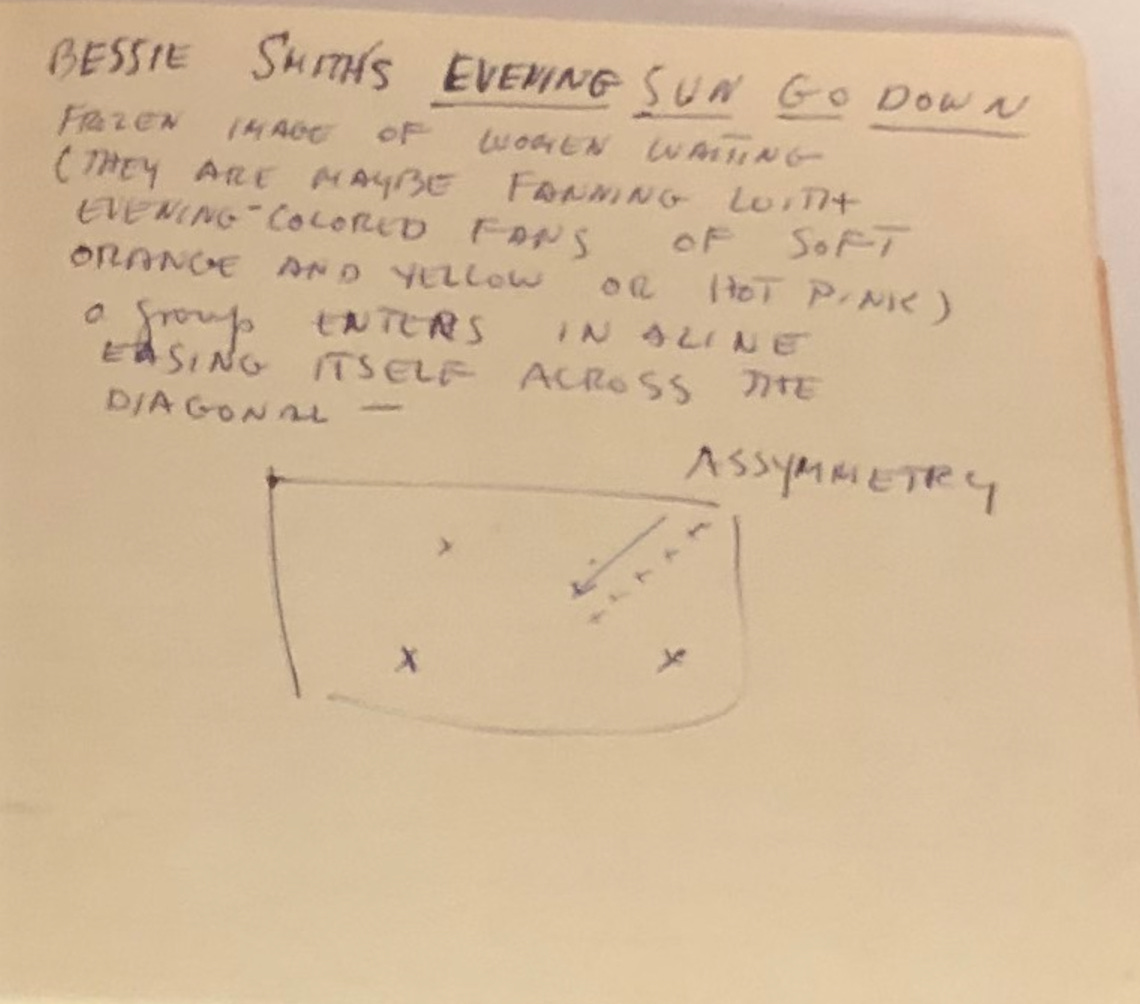 BESSIE SMITH'S EVENING SUN GO DOWN
FROZEN IMAGE OF WOMEN WAITING
(THEY ARE MAYBE FANNING WITH
EVENING-COLORED FANS OF SOFT
ORANGE AND YELLOW OR HOT PINK)
a group ENTERS IN A LINE
EASING ITSELF ACROSS THE
DIAGONAL —
ASSYMMETRY